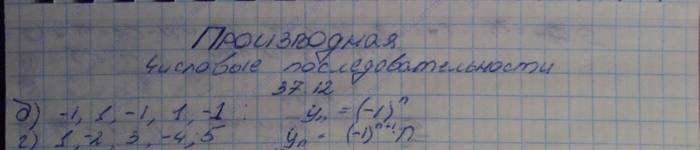 Производная
Числовые последовательности
37.12
б) -1, 1, -1, 1, -1 : yₙ = (-1)ⁿ
г) 1, -2, 3, -4, 5 yₙ = (-1)ⁿ⁺¹·n